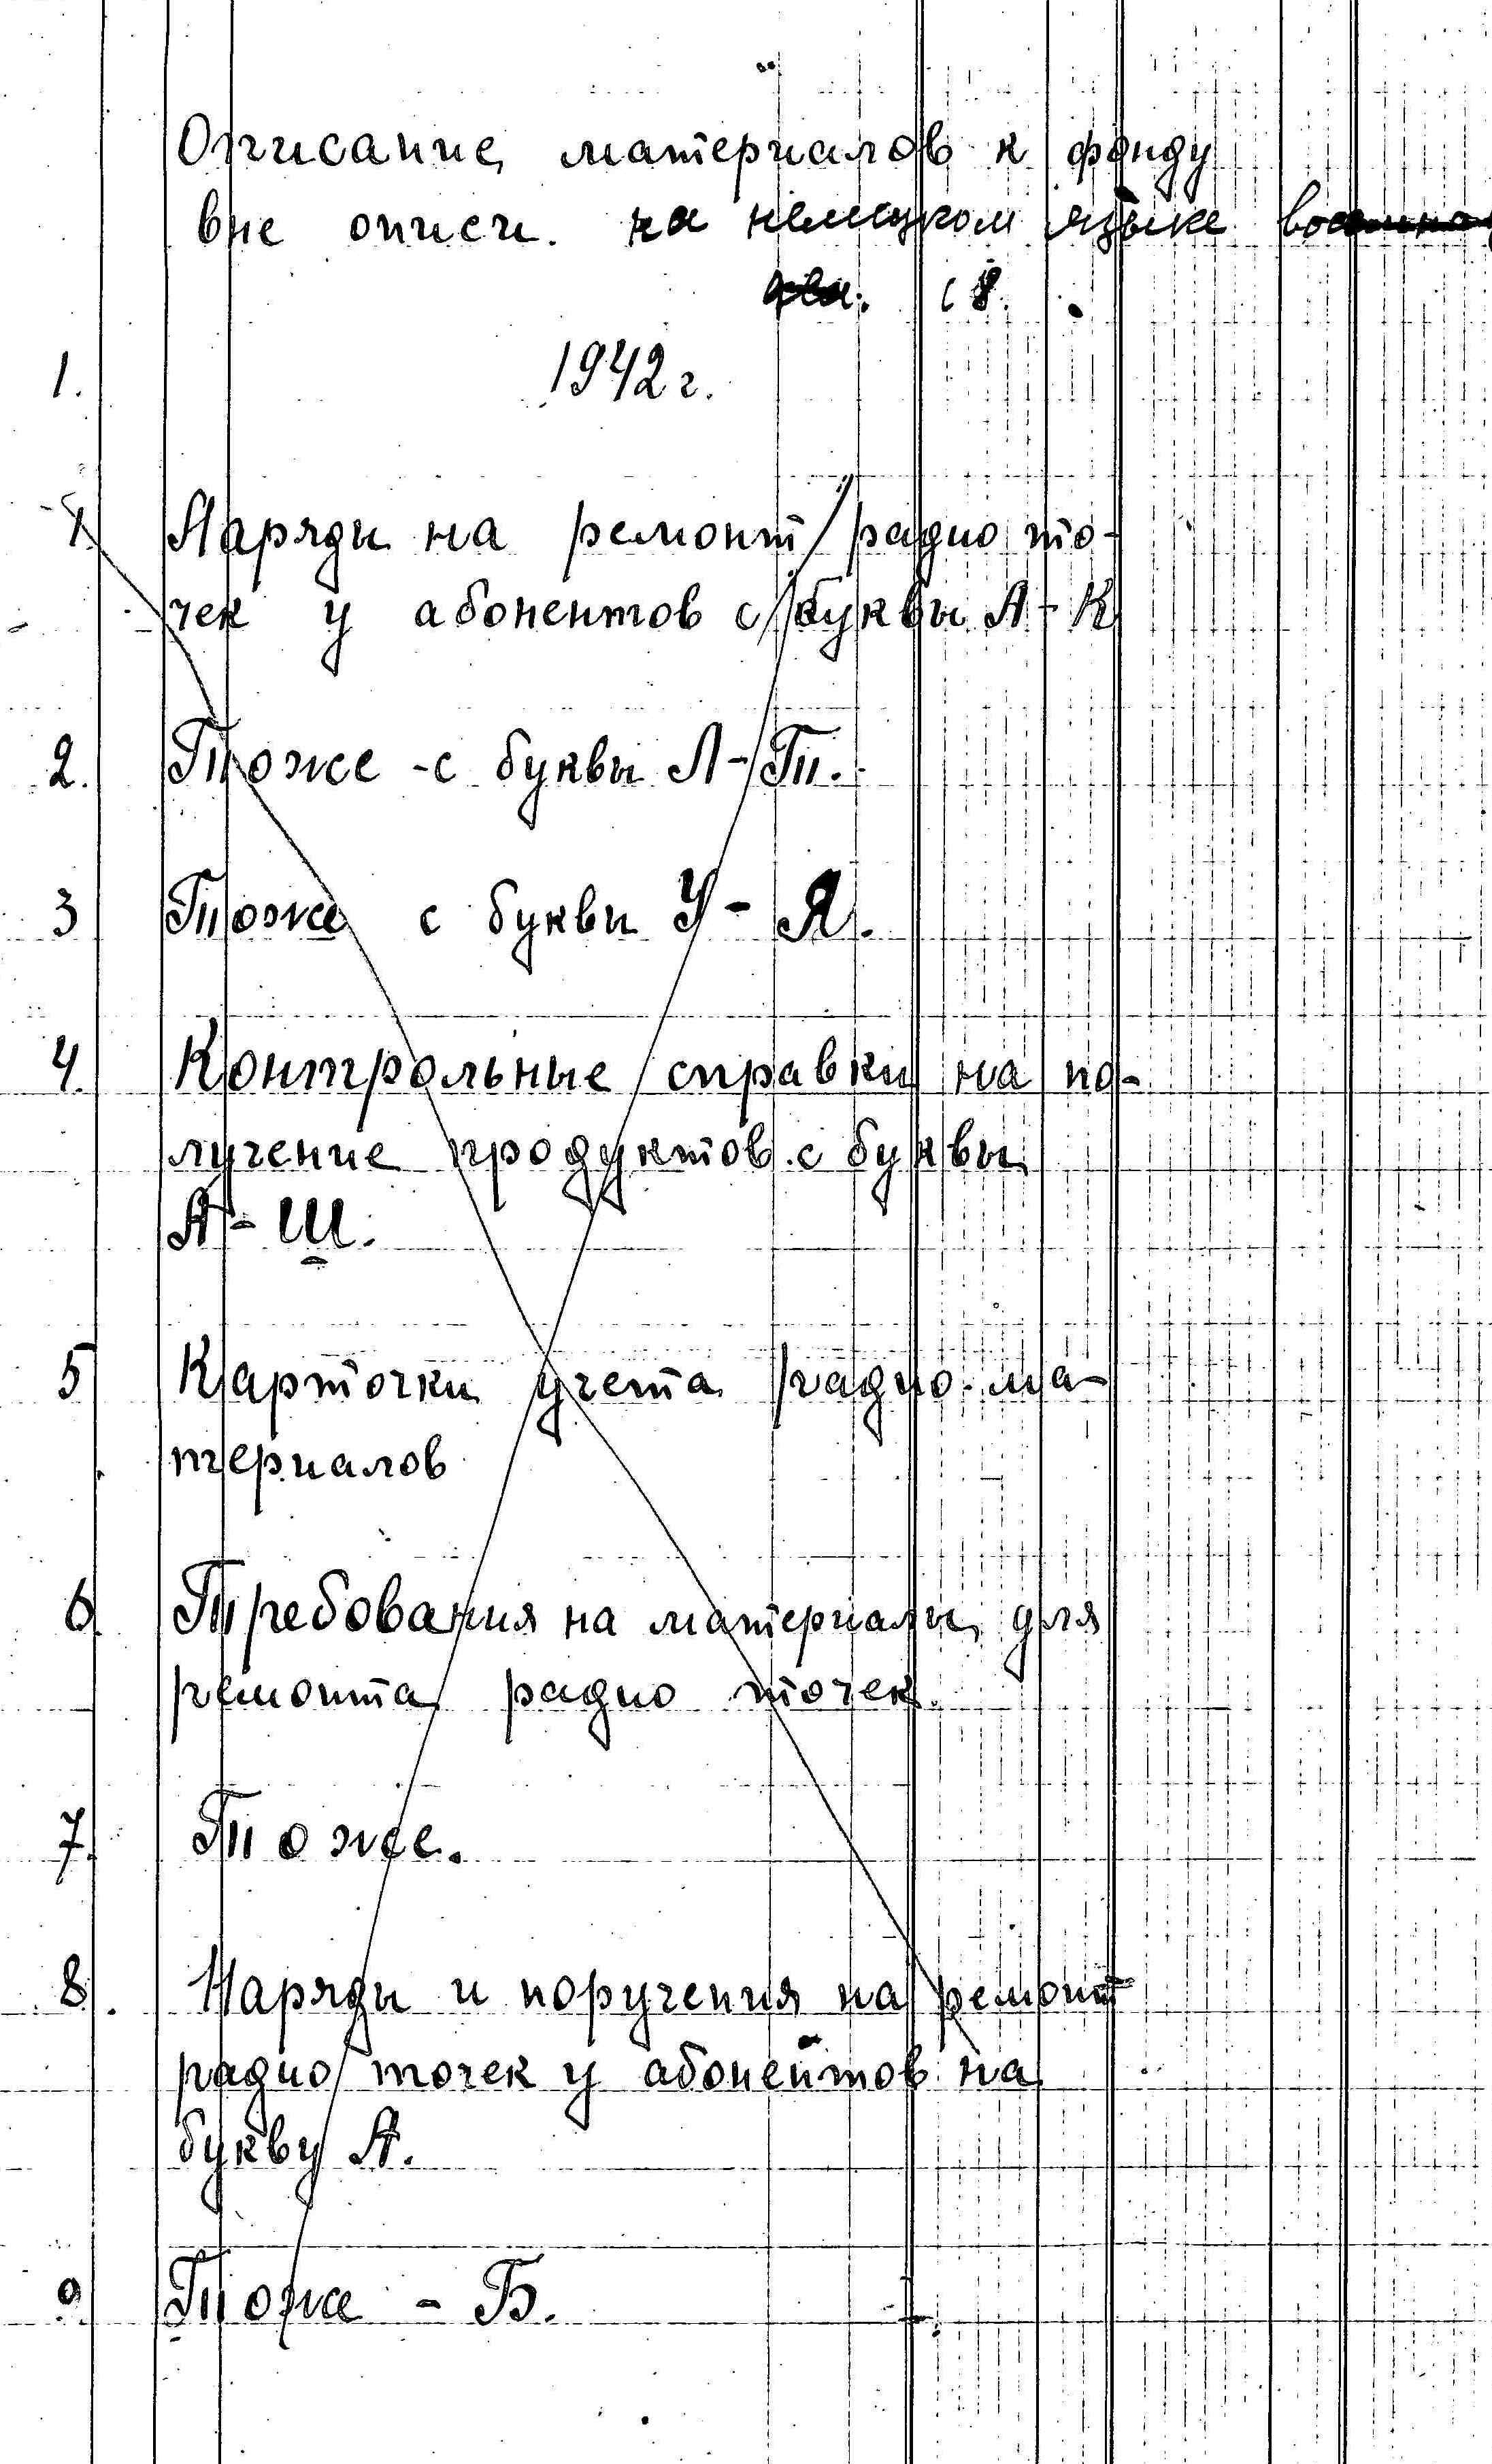 Описание материалов к фонду
вне описи. на немецком языке
с 8.
1. 1942 г.
1. Наряды на ремонт радио то-
чек у абонентов с буквы А-К
2. Тоже - с буквы Л-Т.
3 Тоже с буквы У- Я.
4. Контрольные справки на по-
лучение продуктов с буквы
А - Ш.
5 Карточки учета радио-ма-
териалов
6. Требования на материалы для
ремонта радио точек.
7. Тоже.
8. Наряды и поручения на ремонт
радио точек у абонентов на
букву А.
9. Тоже - Б.